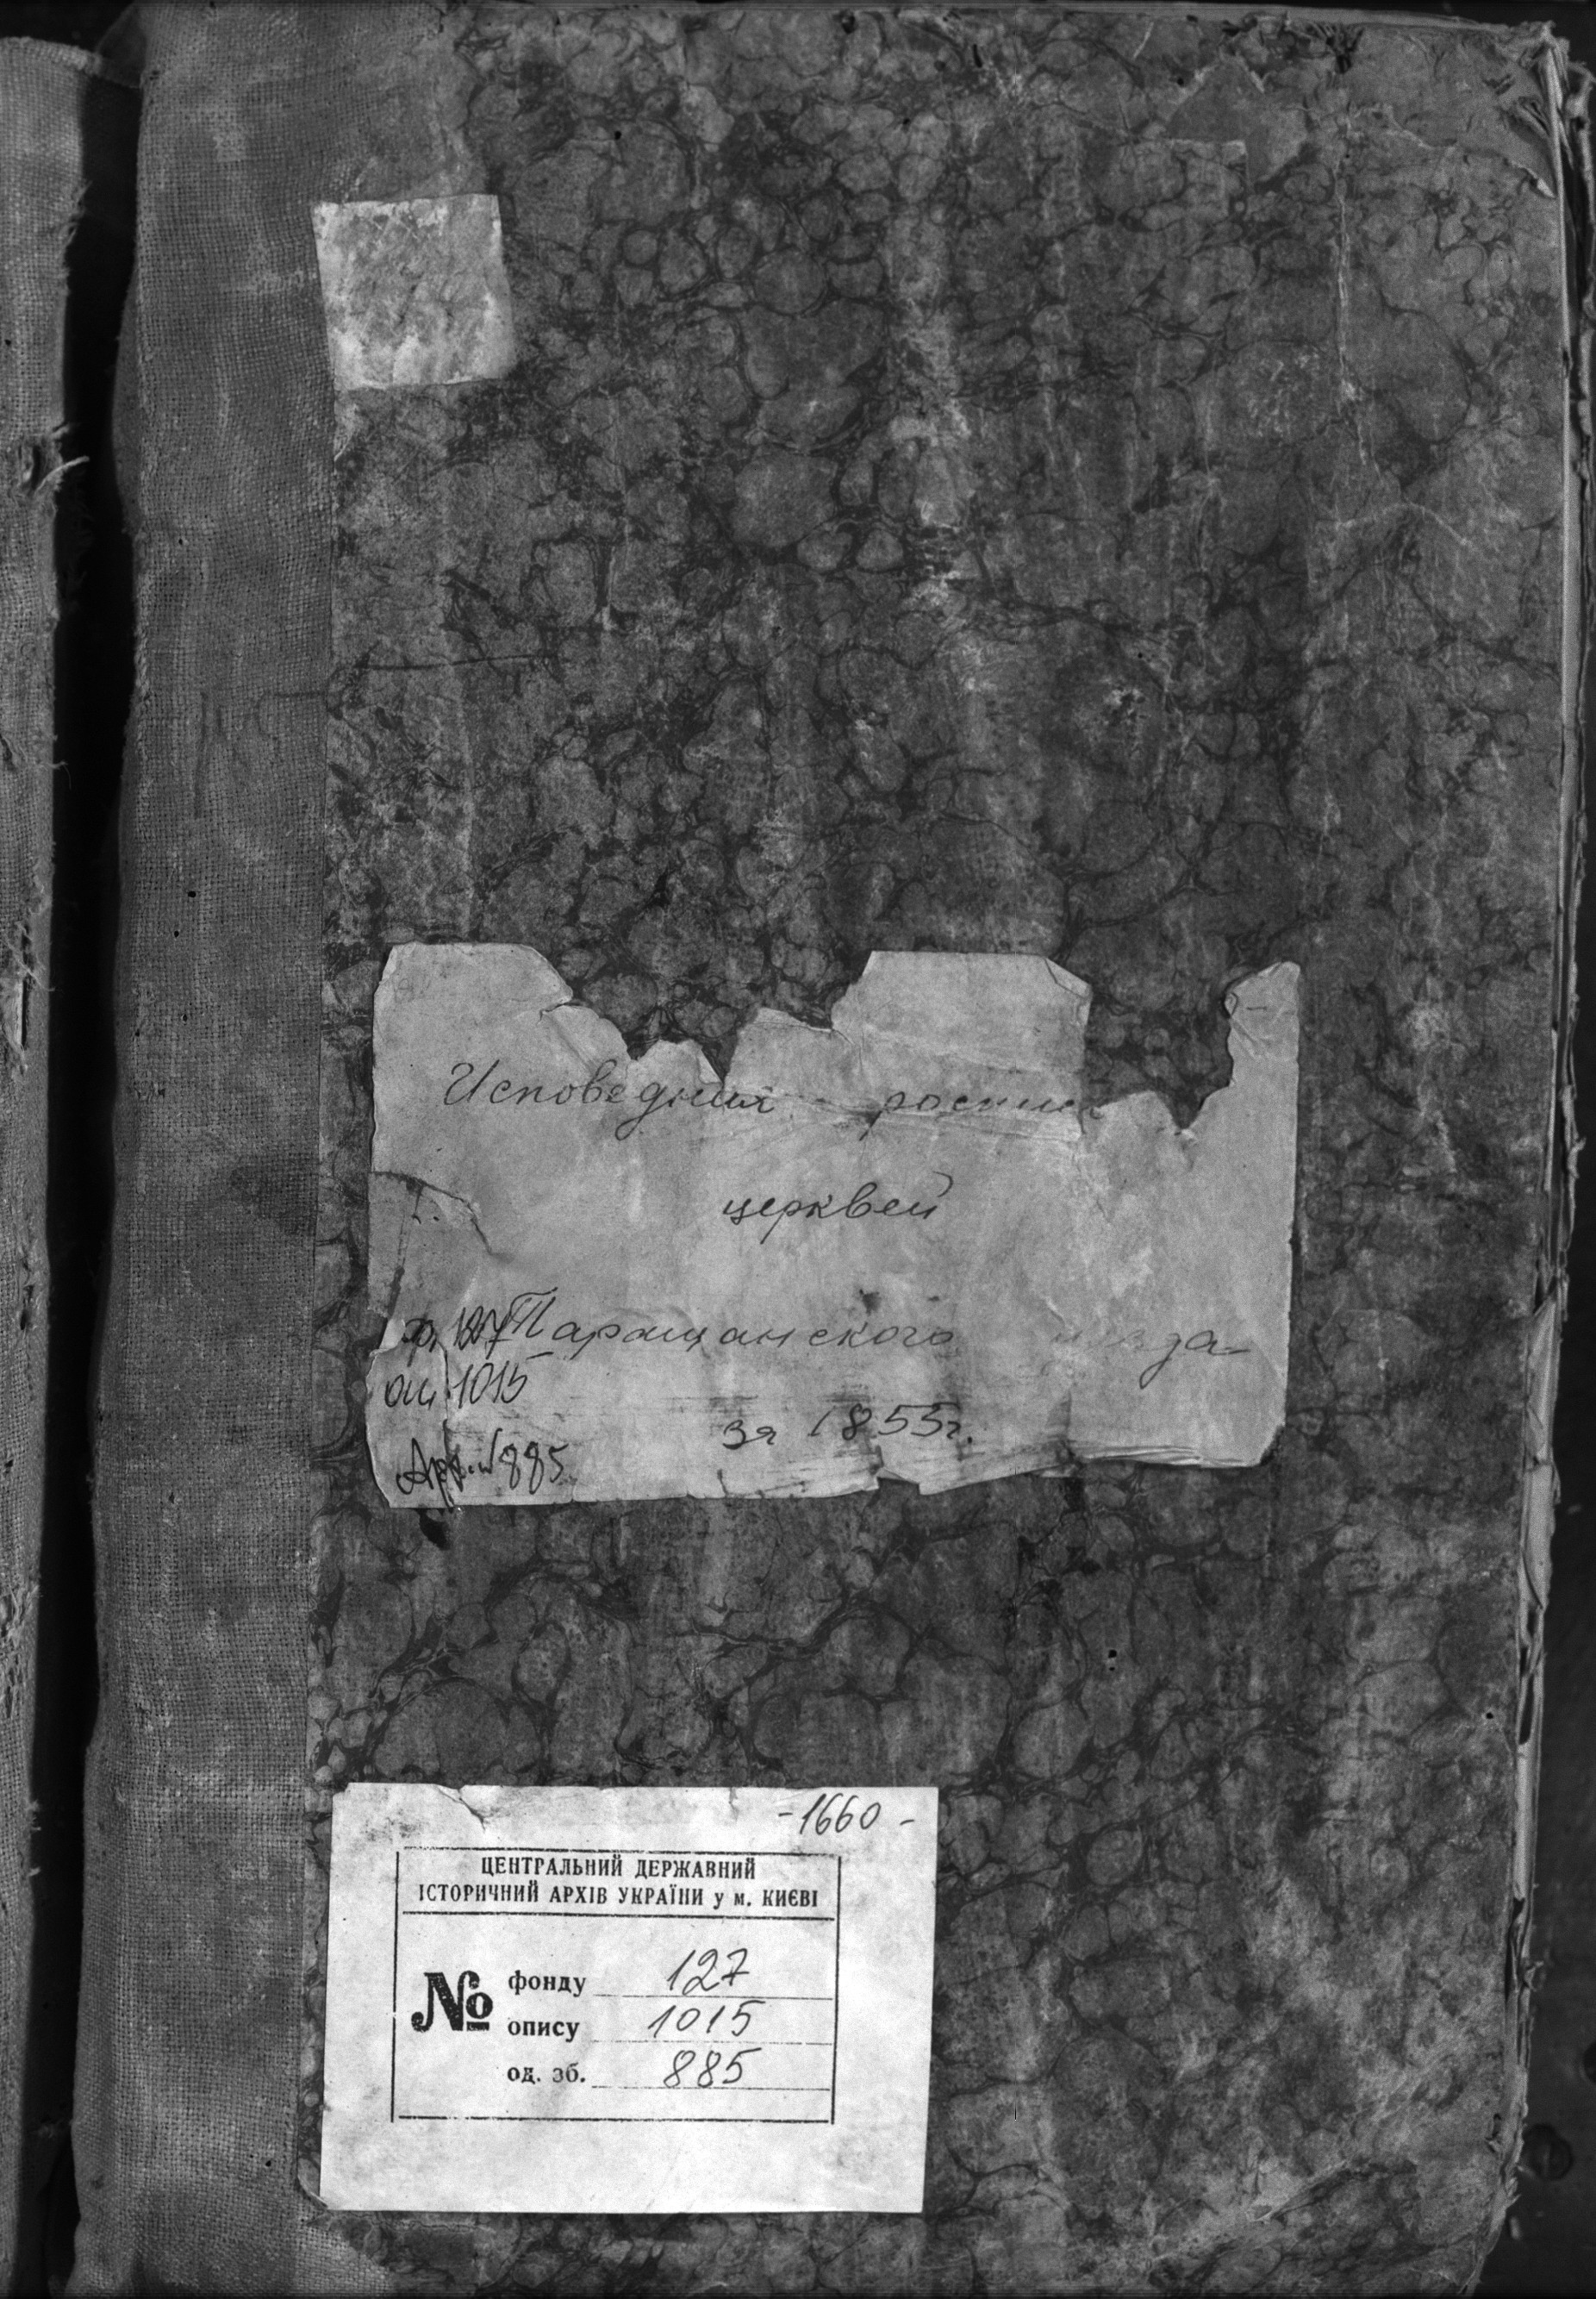 Исповедния роспи
церквей
ф. 127 Таращанского
оп. 1015
за 1855г.
Арх. № 885
-1660-
ЦЕНТРАЛЬНИЙ ДЕРЖАВНИЙ
ІСТОРИЧНИЙ АРХІВ УКРАЇНИ у м. КИЄВІ
№ фонду 127
опису 1015
од. зб. 885